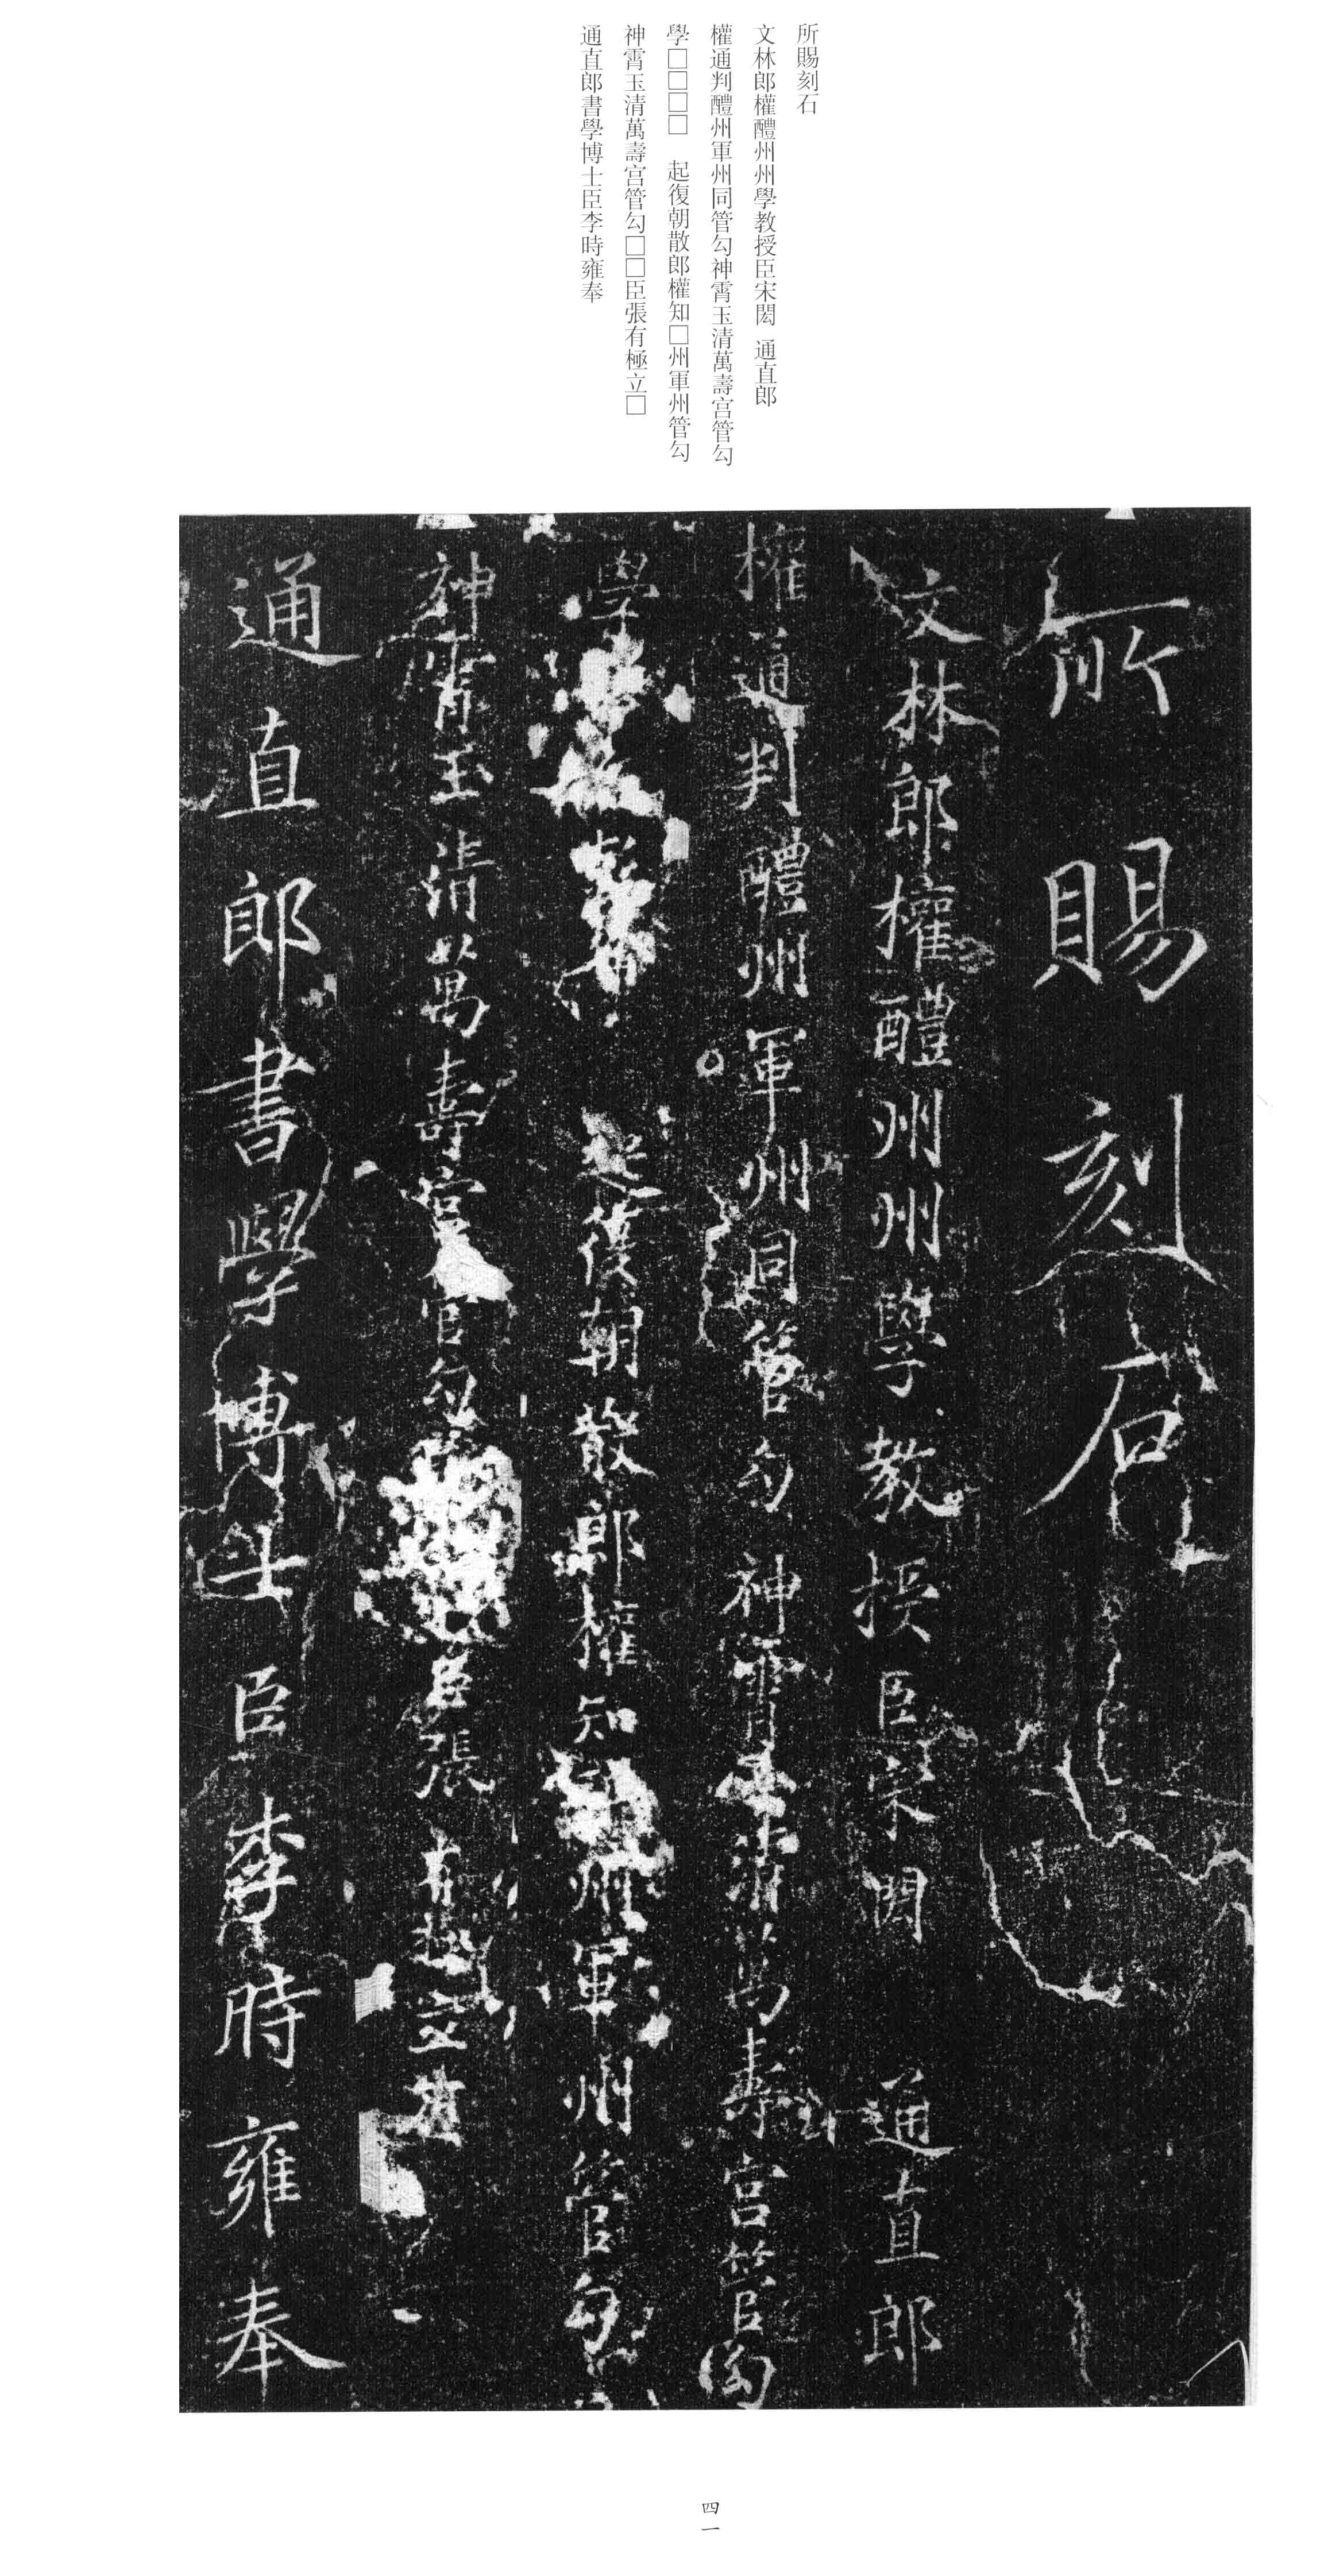 所賜刻石
文林郎權醴州州學教授臣宋閎 通直郎
權通判醴州軍州同管勾神霄玉清萬壽宮管勾
學□□□□ 起復朝散郎權知□州軍州管勾
神霄玉清萬壽宮管勾□□臣張有極立□
通直郎書學博士臣李時雍奉
所賜刻石
文林郎權醴州州學教授臣宋閎 通直郎
權通判醴州軍州同管勾神霄玉清萬壽宮管勾
學 起復朝散郎權知 州軍州管勾
神霄玉清萬壽宮管勾 臣張有極立
通直郎書學博士臣李時雍奉
四一